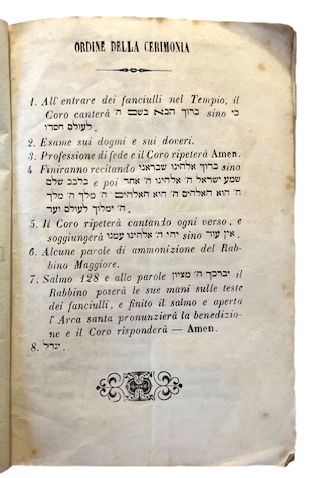 ORDINE DELLA CERIMONIA
1. All'entrare dei fanciulli nel Tempio, il
Coro canterà ברוך הבא בשם ה' sino כי
לעולם חסדו.
2. Esame sui dogmi e sui doveri.
3. Professione di fede e il Coro ripeterà Amen.
4 Finiranno recitando ברוך אלהינו שבראנו sino
בלבב שלם e poi שמע ישראל ה' אלהינו ה' אחד
ה' הוא האלהים ה' הוא האלהים ה' מלך ה' מלך
ה' ימלוך לעולם ועד.
5. Il Coro ripeterà cantando ogni verso, e
soggiungerà יהי ה' אלהינו עמנו sino אין עוד.
6. Alcune parole di ammonizione del Rab-
bino Maggiore.
7. Salmo 128 e alle parole יברכך ה' מציון il
Rabbino poserà le sue mani sulle teste
dei fanciulli, e finito il salmo e aperta
l'Arca santa pronunzierà la benedizio-
ne e il Coro risponderà — Amen.
8. יגדל.